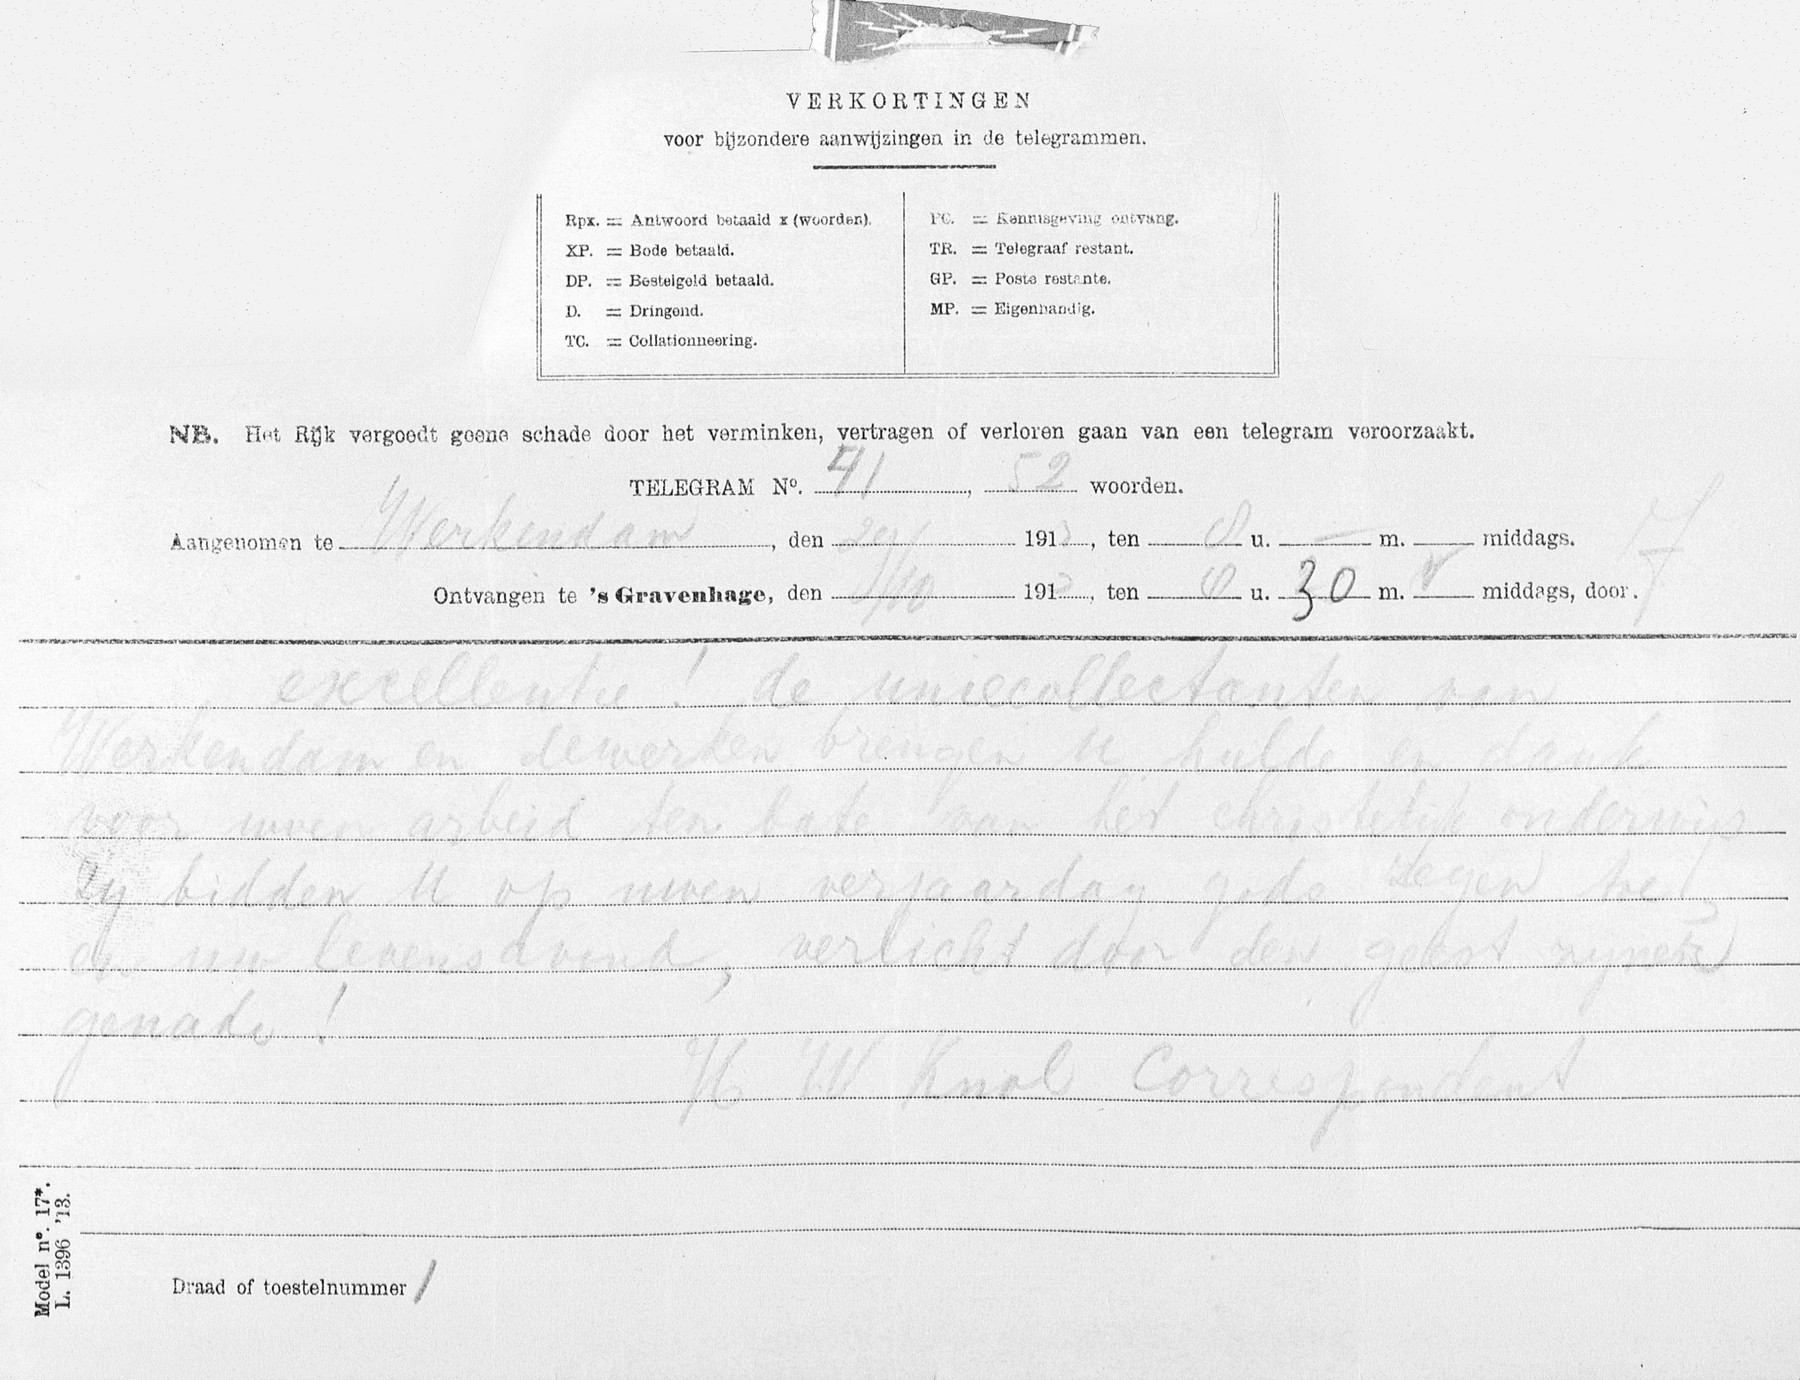 VERKORTINGEN
voor bijzondere aanwijzingen in de telegrammen.
Rpx. = Antwoord betaald x (woorden).
XP. = Bode betaald.
DP. = Bestelgeld betaald.
D. = Dringend.
TC. = Collationneering.
PC. = Kennisgeving ontvang.
TR. = Telegraaf restant.
GP. = Poste restante.
MP. = Eigenhandig.
NB. Het Rijk vergoedt geene schade door het verminken, vertragen of verloren gaan van een telegram veroorzaakt.
TELEGRAM No. 41, 52 woorden.
Aangenomen te Werkendam, den 29/ 1913, ten 8 u. — m. middags.
Ontvangen te 's Gravenhage, den /10 191, ten 8 u. 30 m. v middags, door.
excellentie! de uniecollectanten van
Werkendam en dewerken brengen U hulde en dank
voor uwen arbeid ten bate van het christelijk onderwijs
zy bidden U op uwen verjaardag gods zegen toe
en uw levensavond, verlicht door den geest zyner
genade!
H W Knol Correspondent
Model no. 17*.
L. 1396 '13.
Draad of toestelnummer 1